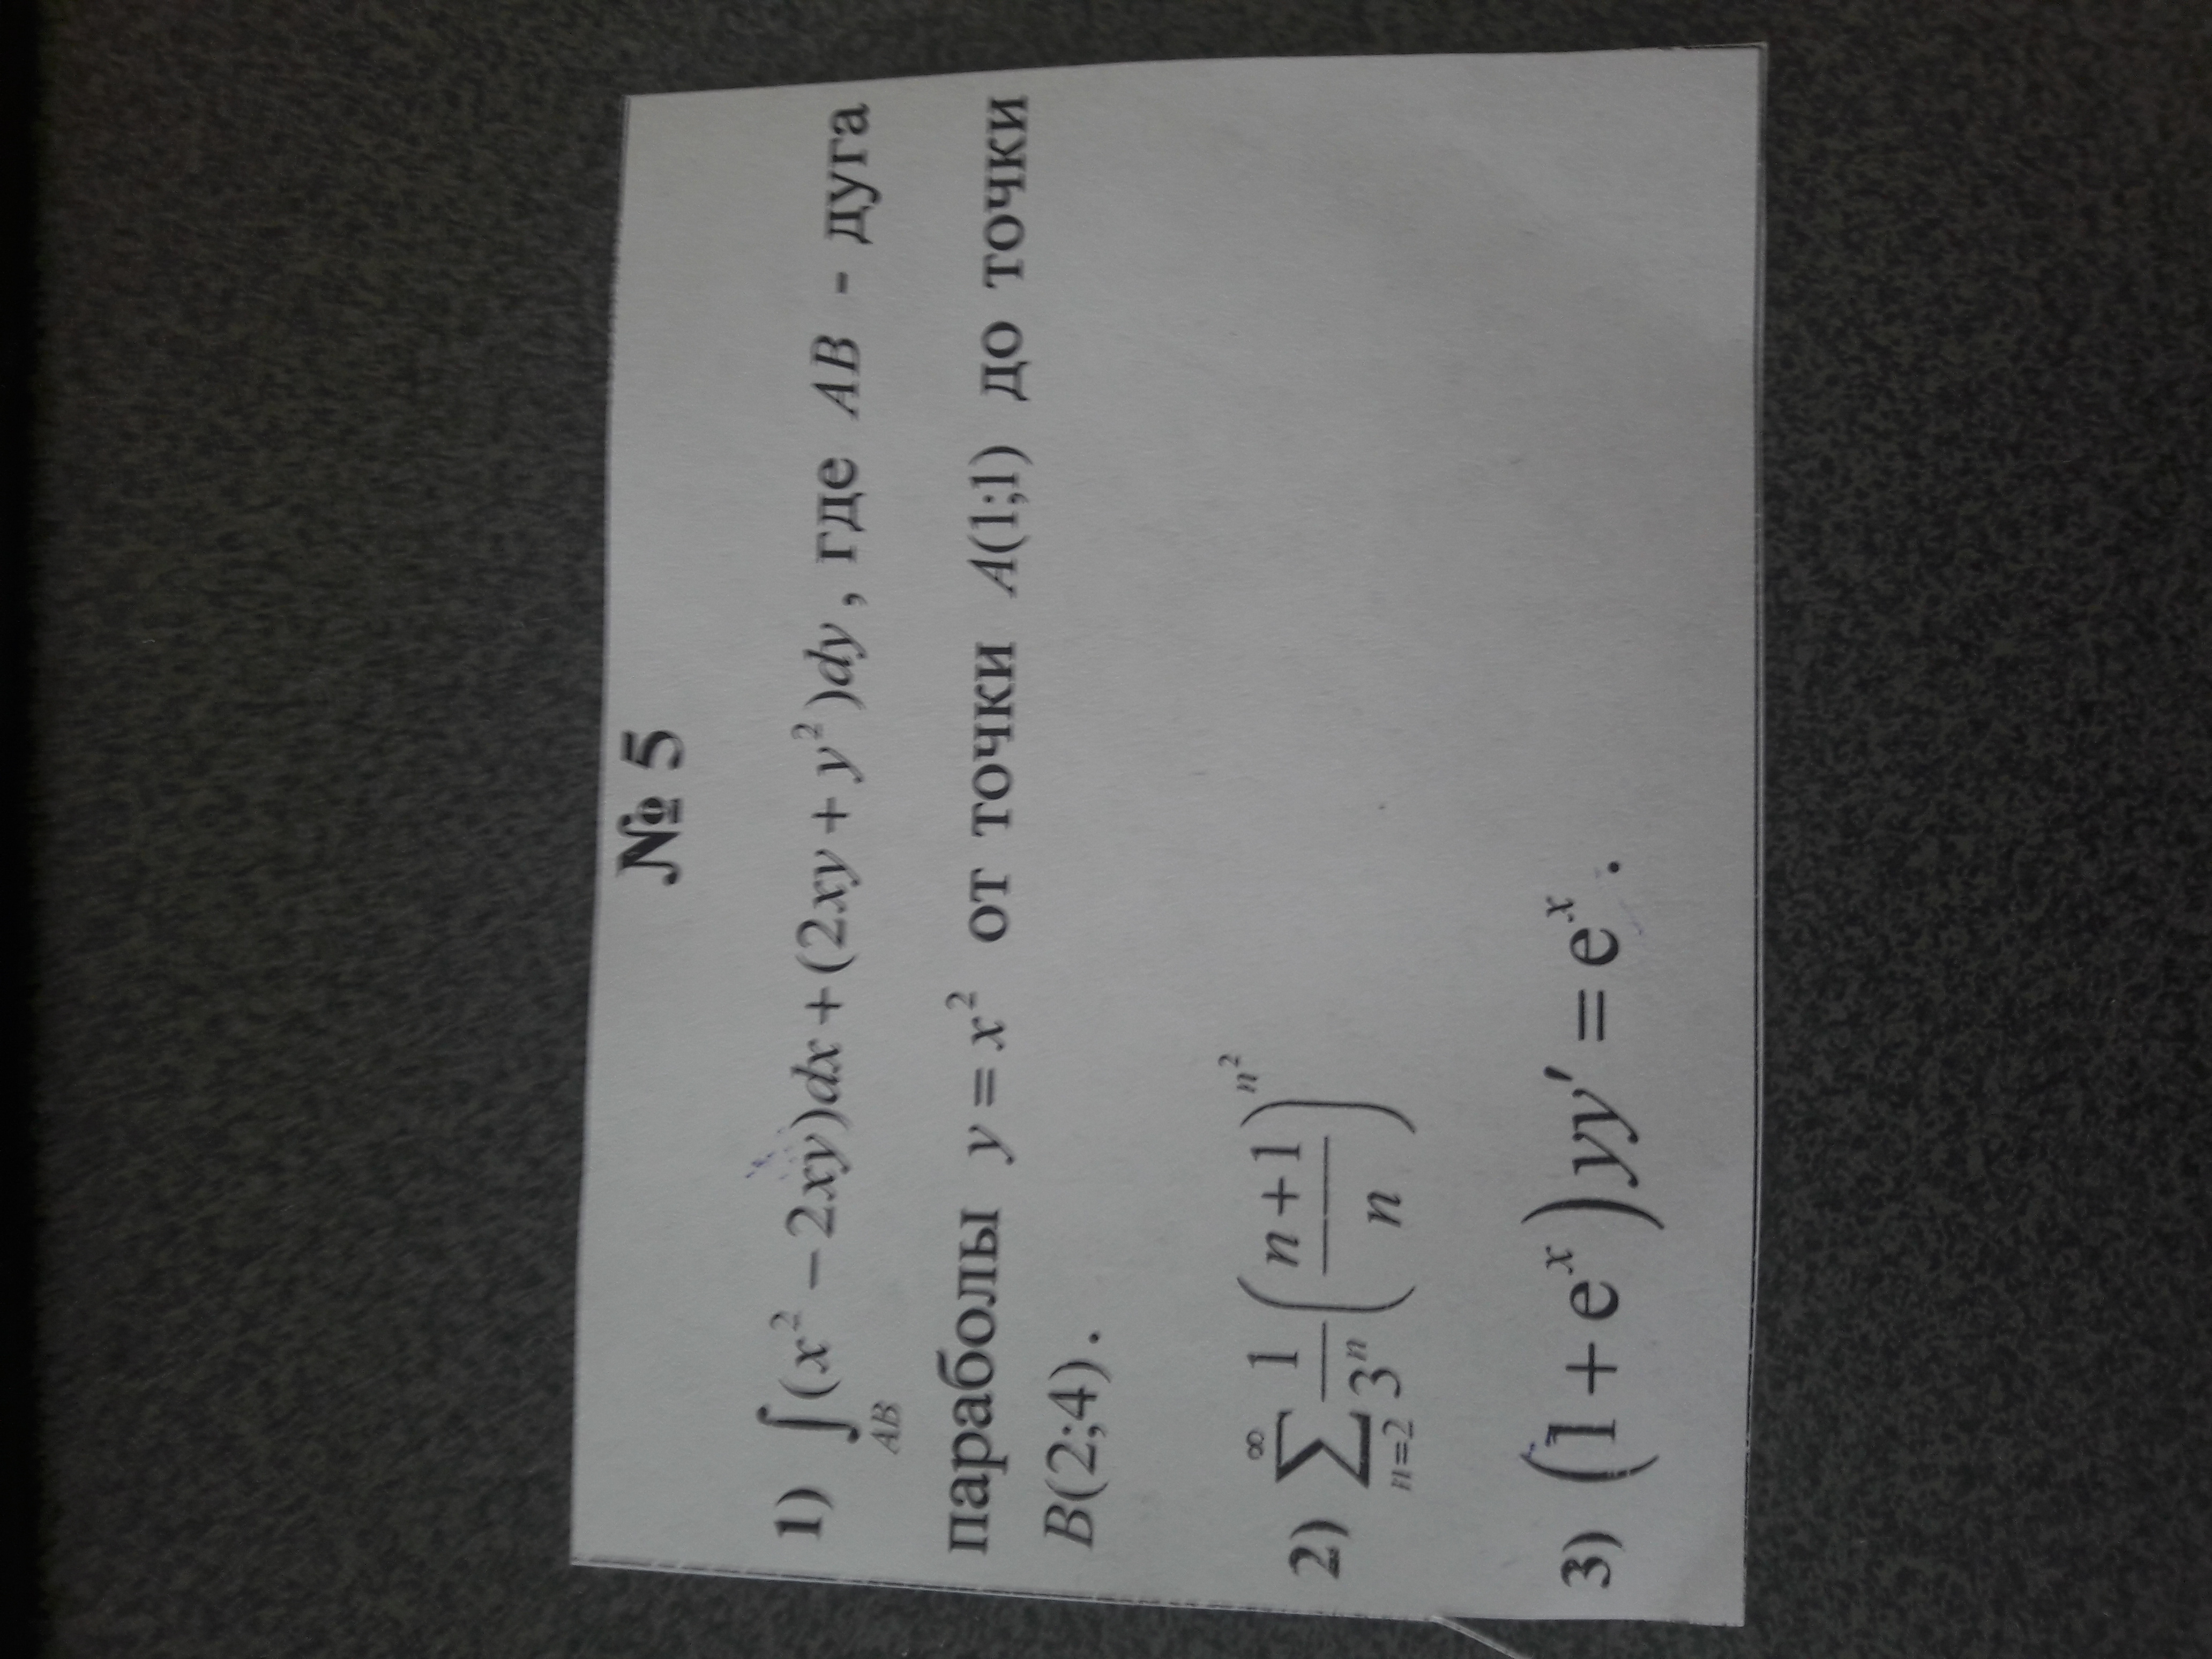 № 5
1) ∫_{AB} (x² − 2xy)dx + (2xy + y²)dy, где AB - дуга
параболы y = x² от точки A(1;1) до точки
B(2;4).
2) \sum_{n=2}^{∞} \frac{1}{3^n} \left( \frac{n+1}{n} \right)^{n^2}
3) (1 + e^x)yy′ = e^x.